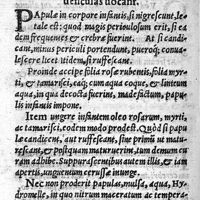 dendulas uocant.
PApulæ in corpore infantis, si nigrescunt, le-
tale est: quod magis periculosum erit, si ea-
dem frequentes & crebræ fuerint. At si candi-
cant, minus periculi portendunt, pueroq; conua-
lescere licet itidem, si ruffescant.
Proinde accipe folia rosæ rubentis, folia myr-
ti, & tamarisci, eaq; cum aqua coque, & linteum
in aqua, in qua ea decocta fuerint, madefactum, papu-
lis infantis impone.
Item ungere infantem oleo rosarum, myrti,
ac tamarisci, eodem modo prodest. Quòd si papu
læ candicent, aut ruffescant, sine primũ ut matu-
rescant, & postquam maturuerint, tum demum cu-
ram adhibe. Suppurascentibus autem illis, & iam
apertis, unguentum cerussæ inunge.
Nec non proderit papulas, mulsa, aqua, Hy-
dromelle, in quo nitrum maceratum ac tempera-